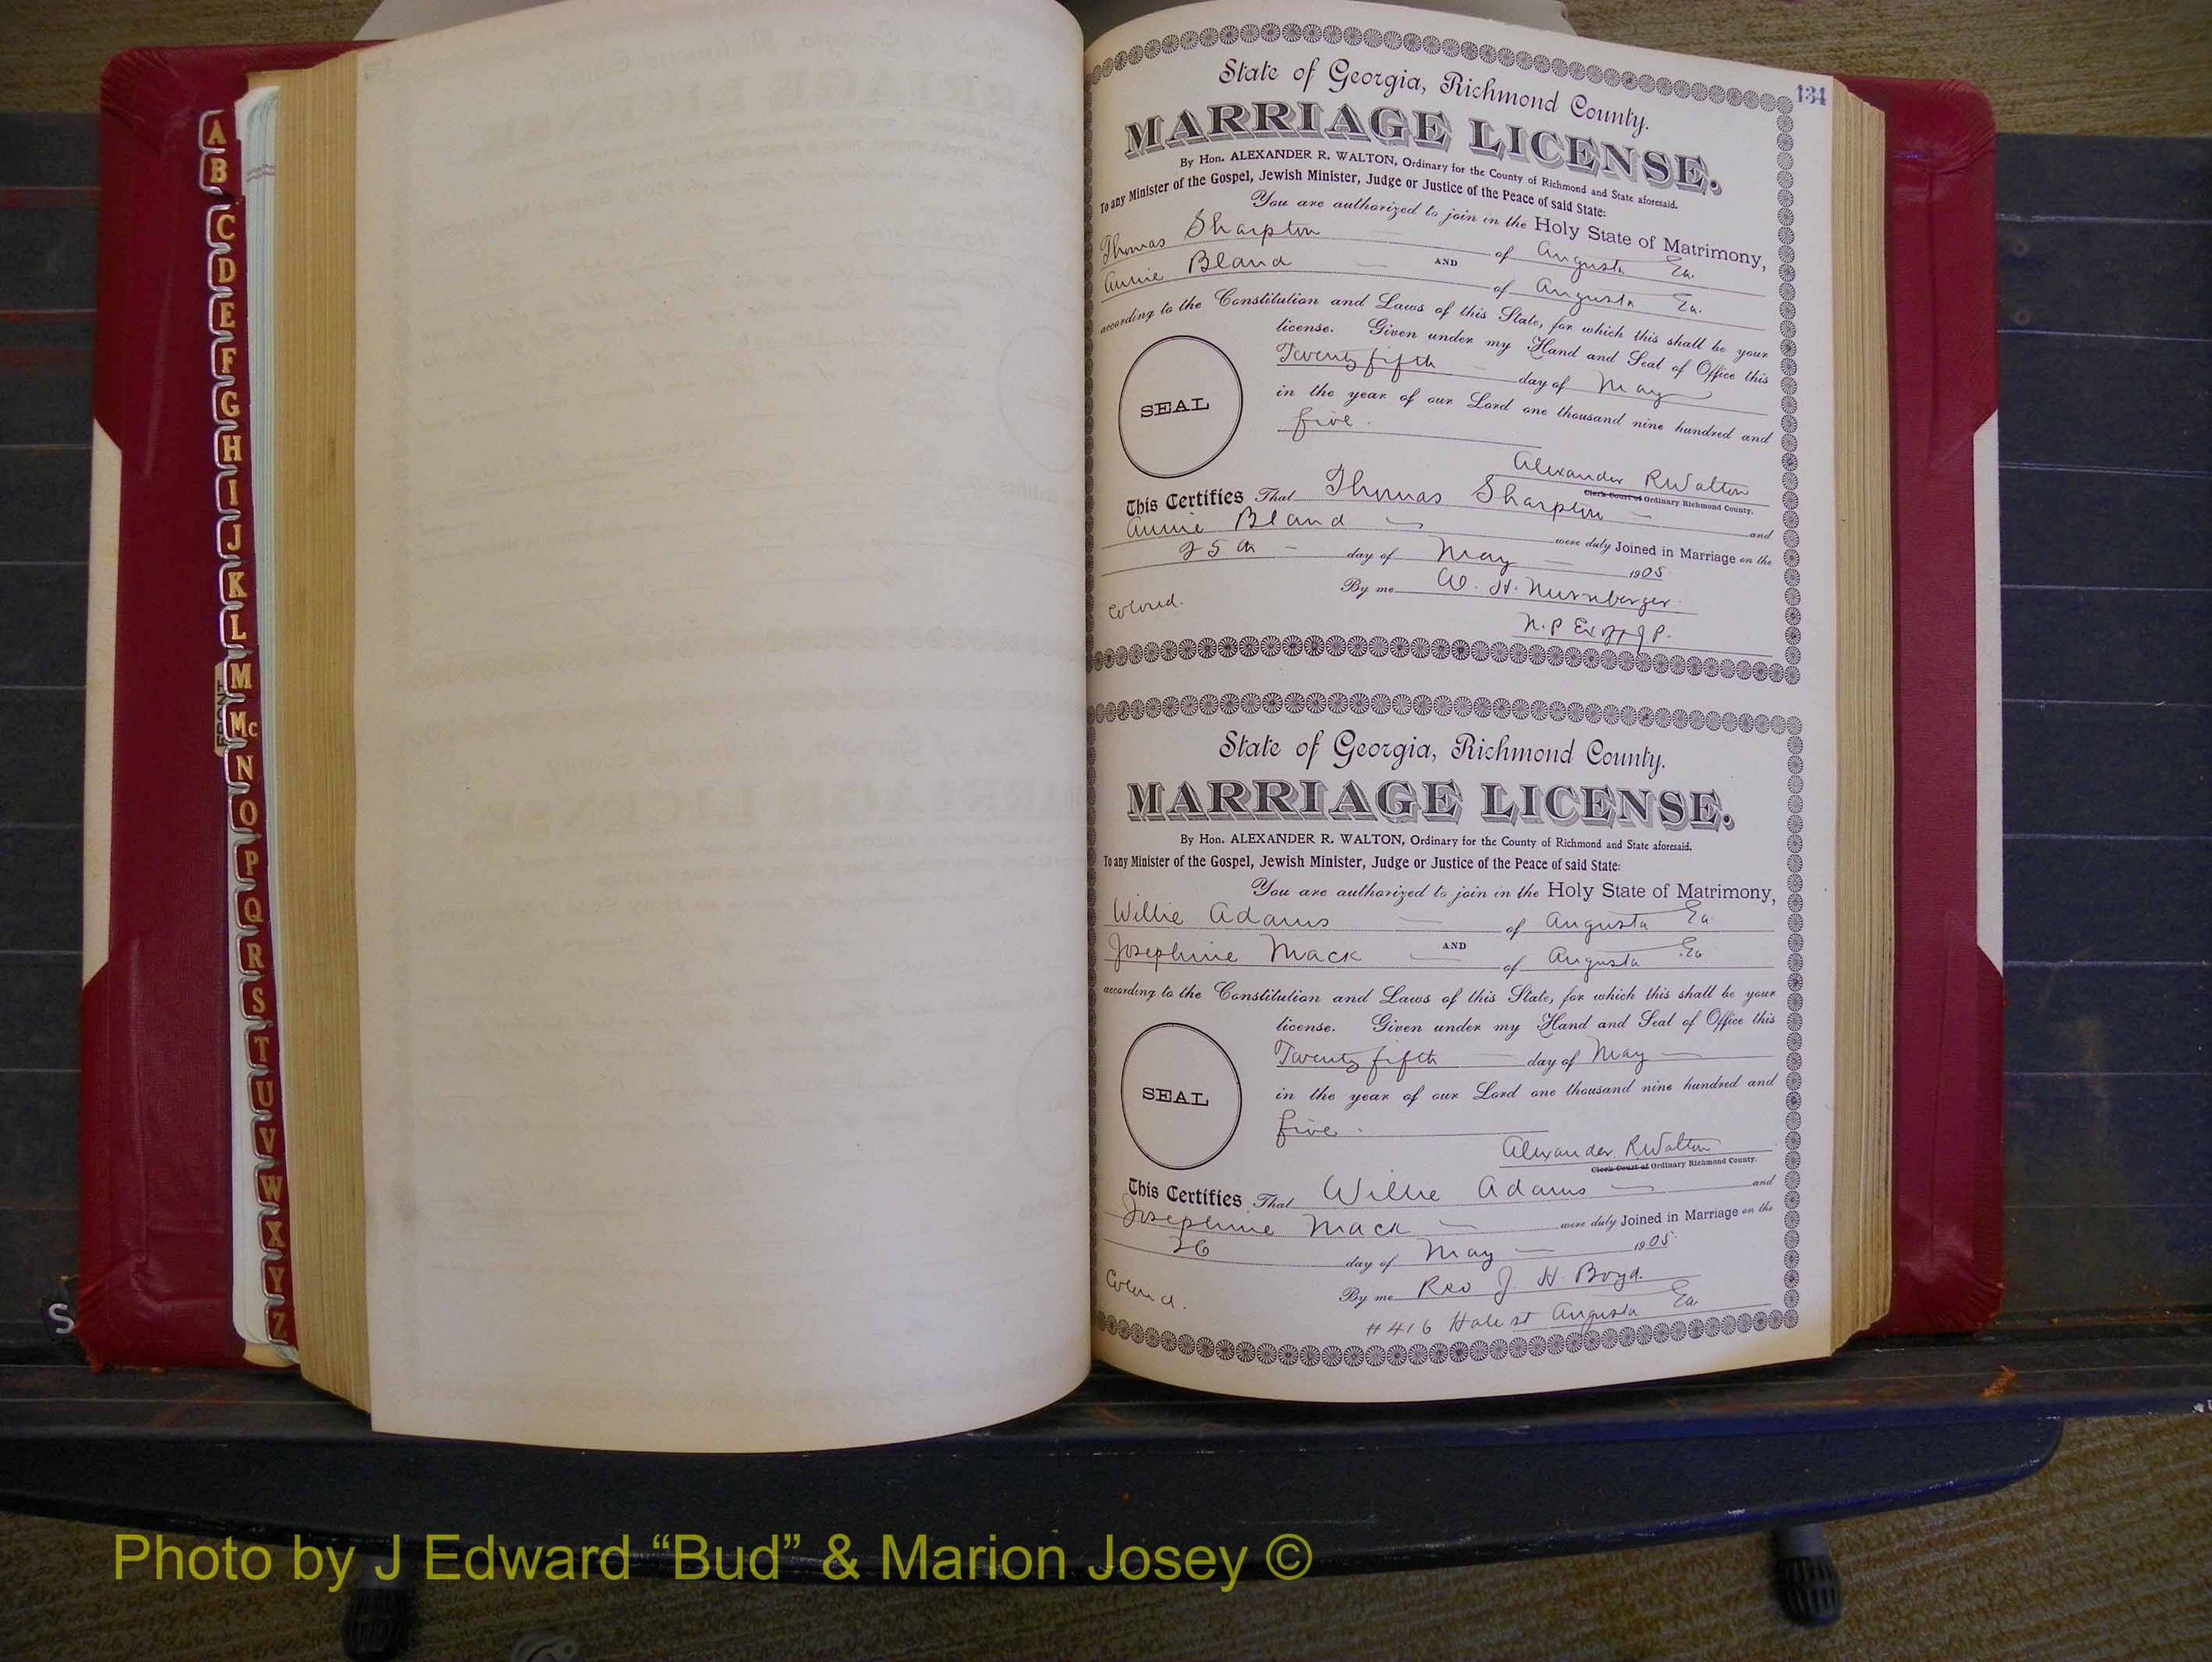 A
B
C
D
E
F
G
H
I
J
K
L
M
Mc
N
O
P
Q
R
S
T
U
V
W
X
Y
Z
FRONT
S
134
State of Georgia, Richmond County.
MARRIAGE LICENSE.
By Hon. ALEXANDER R. WALTON, Ordinary for the County of Richmond and State aforesaid.
To any Minister of the Gospel, Jewish Minister, Judge or Justice of the Peace of said State:
You are authorized to join in the Holy State of Matrimony,
Thomas Sharpton of Augusta Ga.
AND
Annie Bland of Augusta Ga.
according to the Constitution and Laws of this State, for which this shall be your
license. Given under my Hand and Seal of Office this
Twenty fifth day of May
in the year of our Lord one thousand nine hundred and
five.
SEAL
Alexander R Walton
Clerk Court of Ordinary Richmond County.
This Certifies That Thomas Sharpton and
Annie Bland were duly Joined in Marriage on the
25th day of May 1905
By me W. H. Nurnberger.
Colored.
N.P. Ex off J P.
State of Georgia, Richmond County.
MARRIAGE LICENSE.
By Hon. ALEXANDER R. WALTON, Ordinary for the County of Richmond and State aforesaid.
To any Minister of the Gospel, Jewish Minister, Judge or Justice of the Peace of said State:
You are authorized to join in the Holy State of Matrimony,
Willie Adams of Augusta Ga.
AND
Josephine Mack of Augusta Ga
according to the Constitution and Laws of this State, for which this shall be your
license. Given under my Hand and Seal of Office this
Twenty fifth day of May
in the year of our Lord one thousand nine hundred and
five.
SEAL
Alexander R Walton
Clerk Court of Ordinary Richmond County.
This Certifies That Willie Adams and
Josephine Mack were duly Joined in Marriage on the
26 day of May 1905
By me Rev J. H. Boyd.
Colored.
#416 Hale st Augusta Ga
Photo by J Edward “Bud” & Marion Josey ©